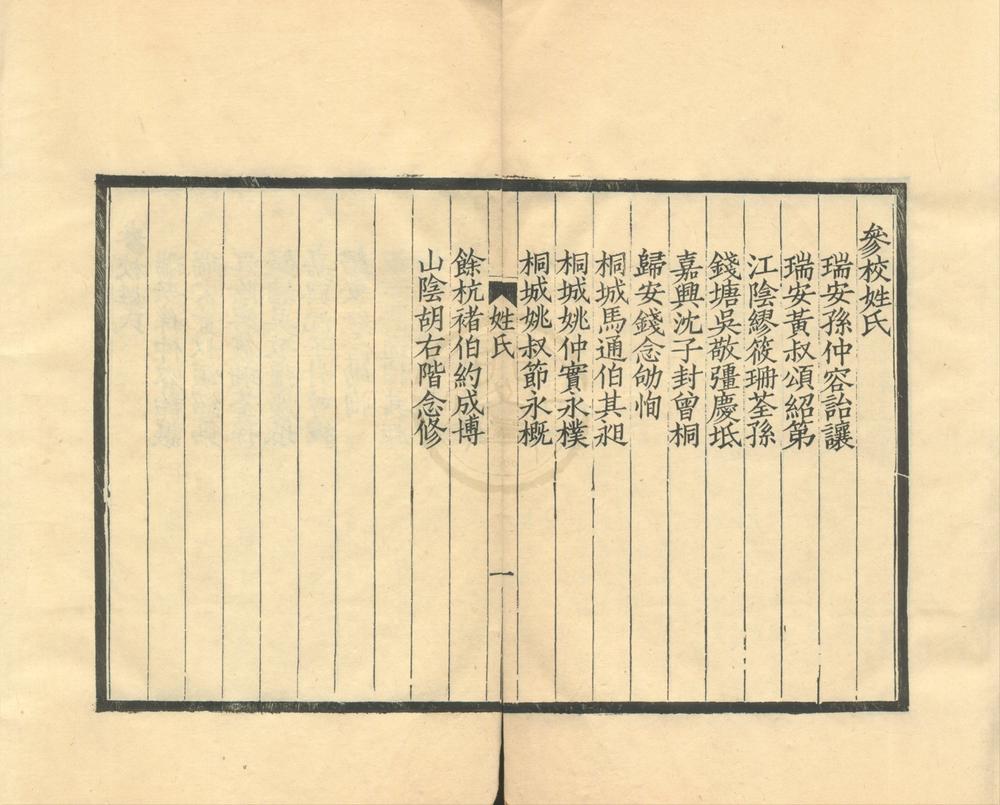 參校姓氏
瑞安孫仲容詒讓
瑞安黃叔頌紹第
江陰繆筱珊荃孫
錢塘吳敬彊慶坻
嘉興沈子封曾桐
歸安錢念劬恂
桐城馬通伯其昶
桐城姚仲實永樸
桐城姚叔節永概
姓氏
一
餘杭褚伯約成博
山陰胡右階念修